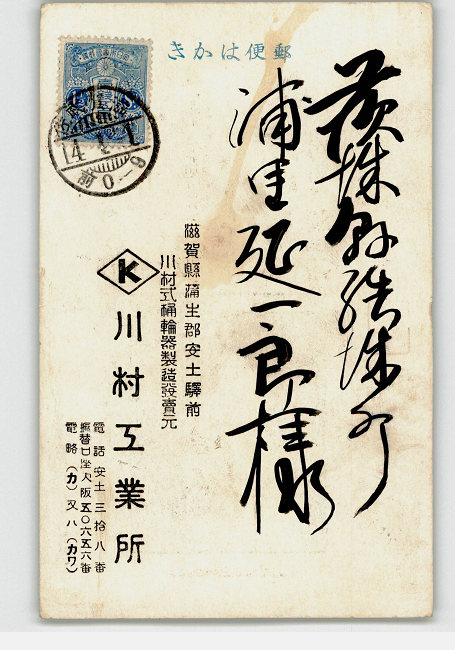 郵便はかき
茨城縣結城町
浦里延一良様
滋賀縣蒲生郡安土驛前
川村式桶輪器製造發賣元
K
川村工業所
電話安土三拾八番
振替口座大阪五〇六五六番
電略（カ）又ハ（カワ）
14.1.1
前0-9